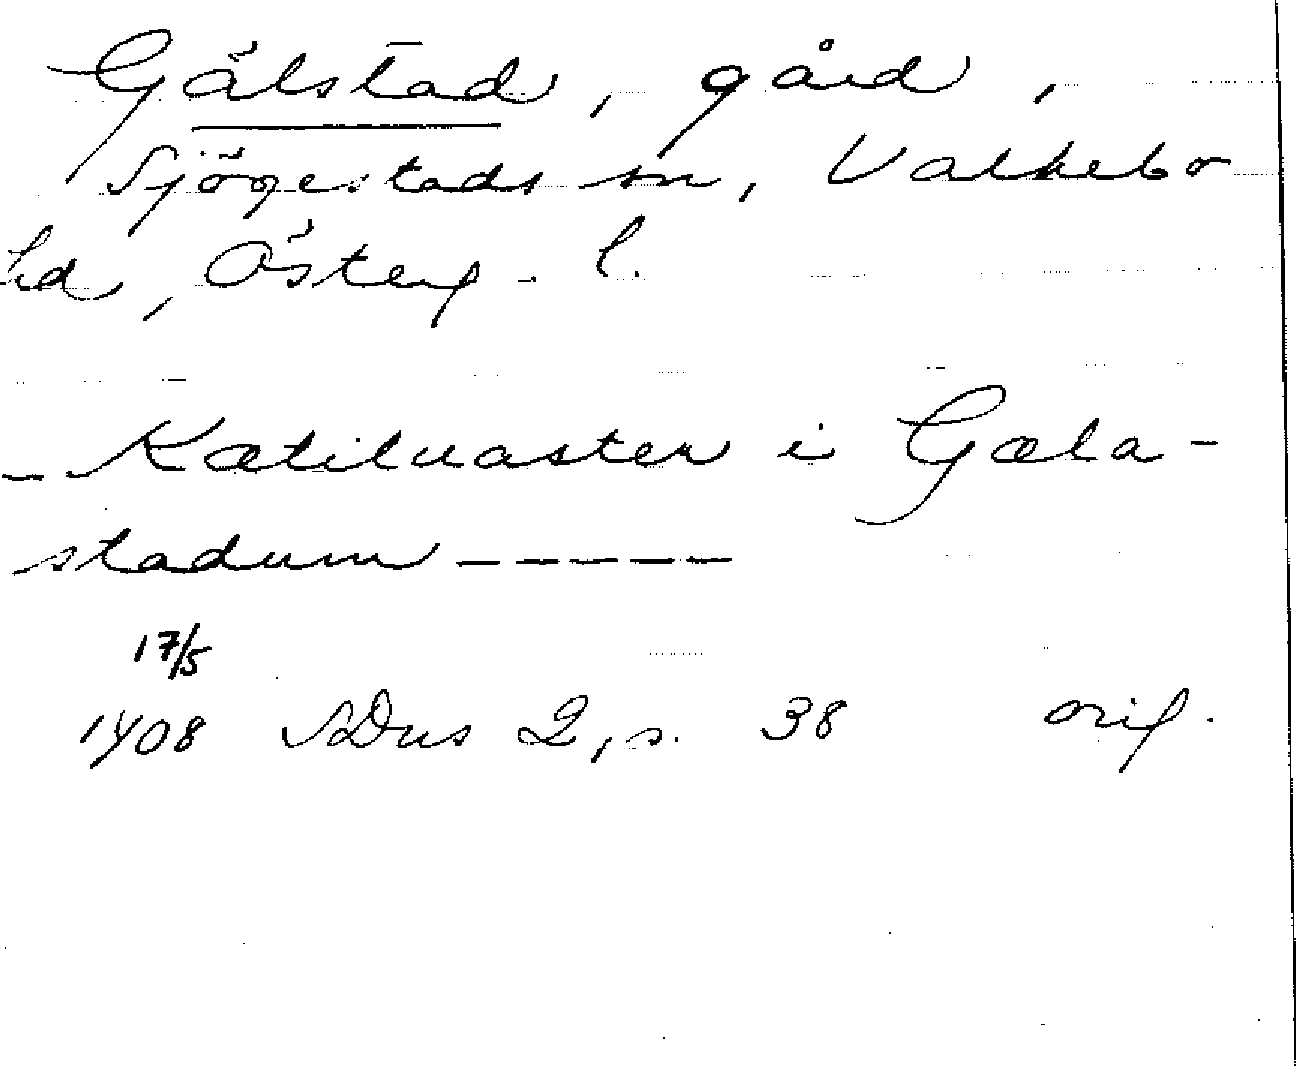 Gälstad, gård,
Sjögestads sn, Valkebo
hd, Österg. l.
- Kætiluaster i Gæla-
stadum - - - - -
17/5
1408 SDns 2, s. 38 orig.